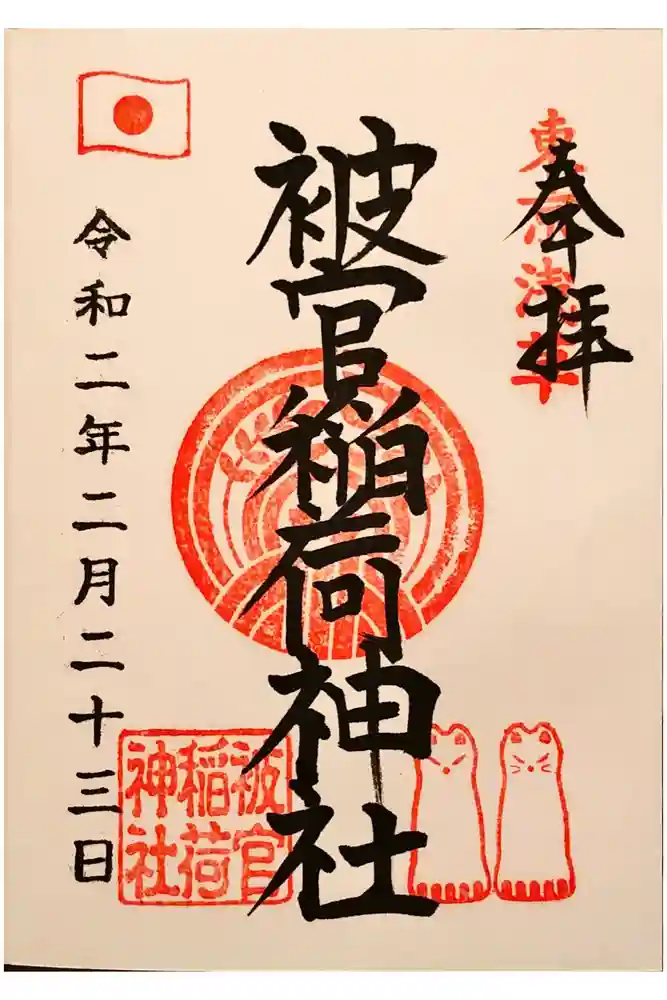 東京浅草
奉拝
被官稲荷神社
被官
稲荷
神社
令和二年二月二十三日